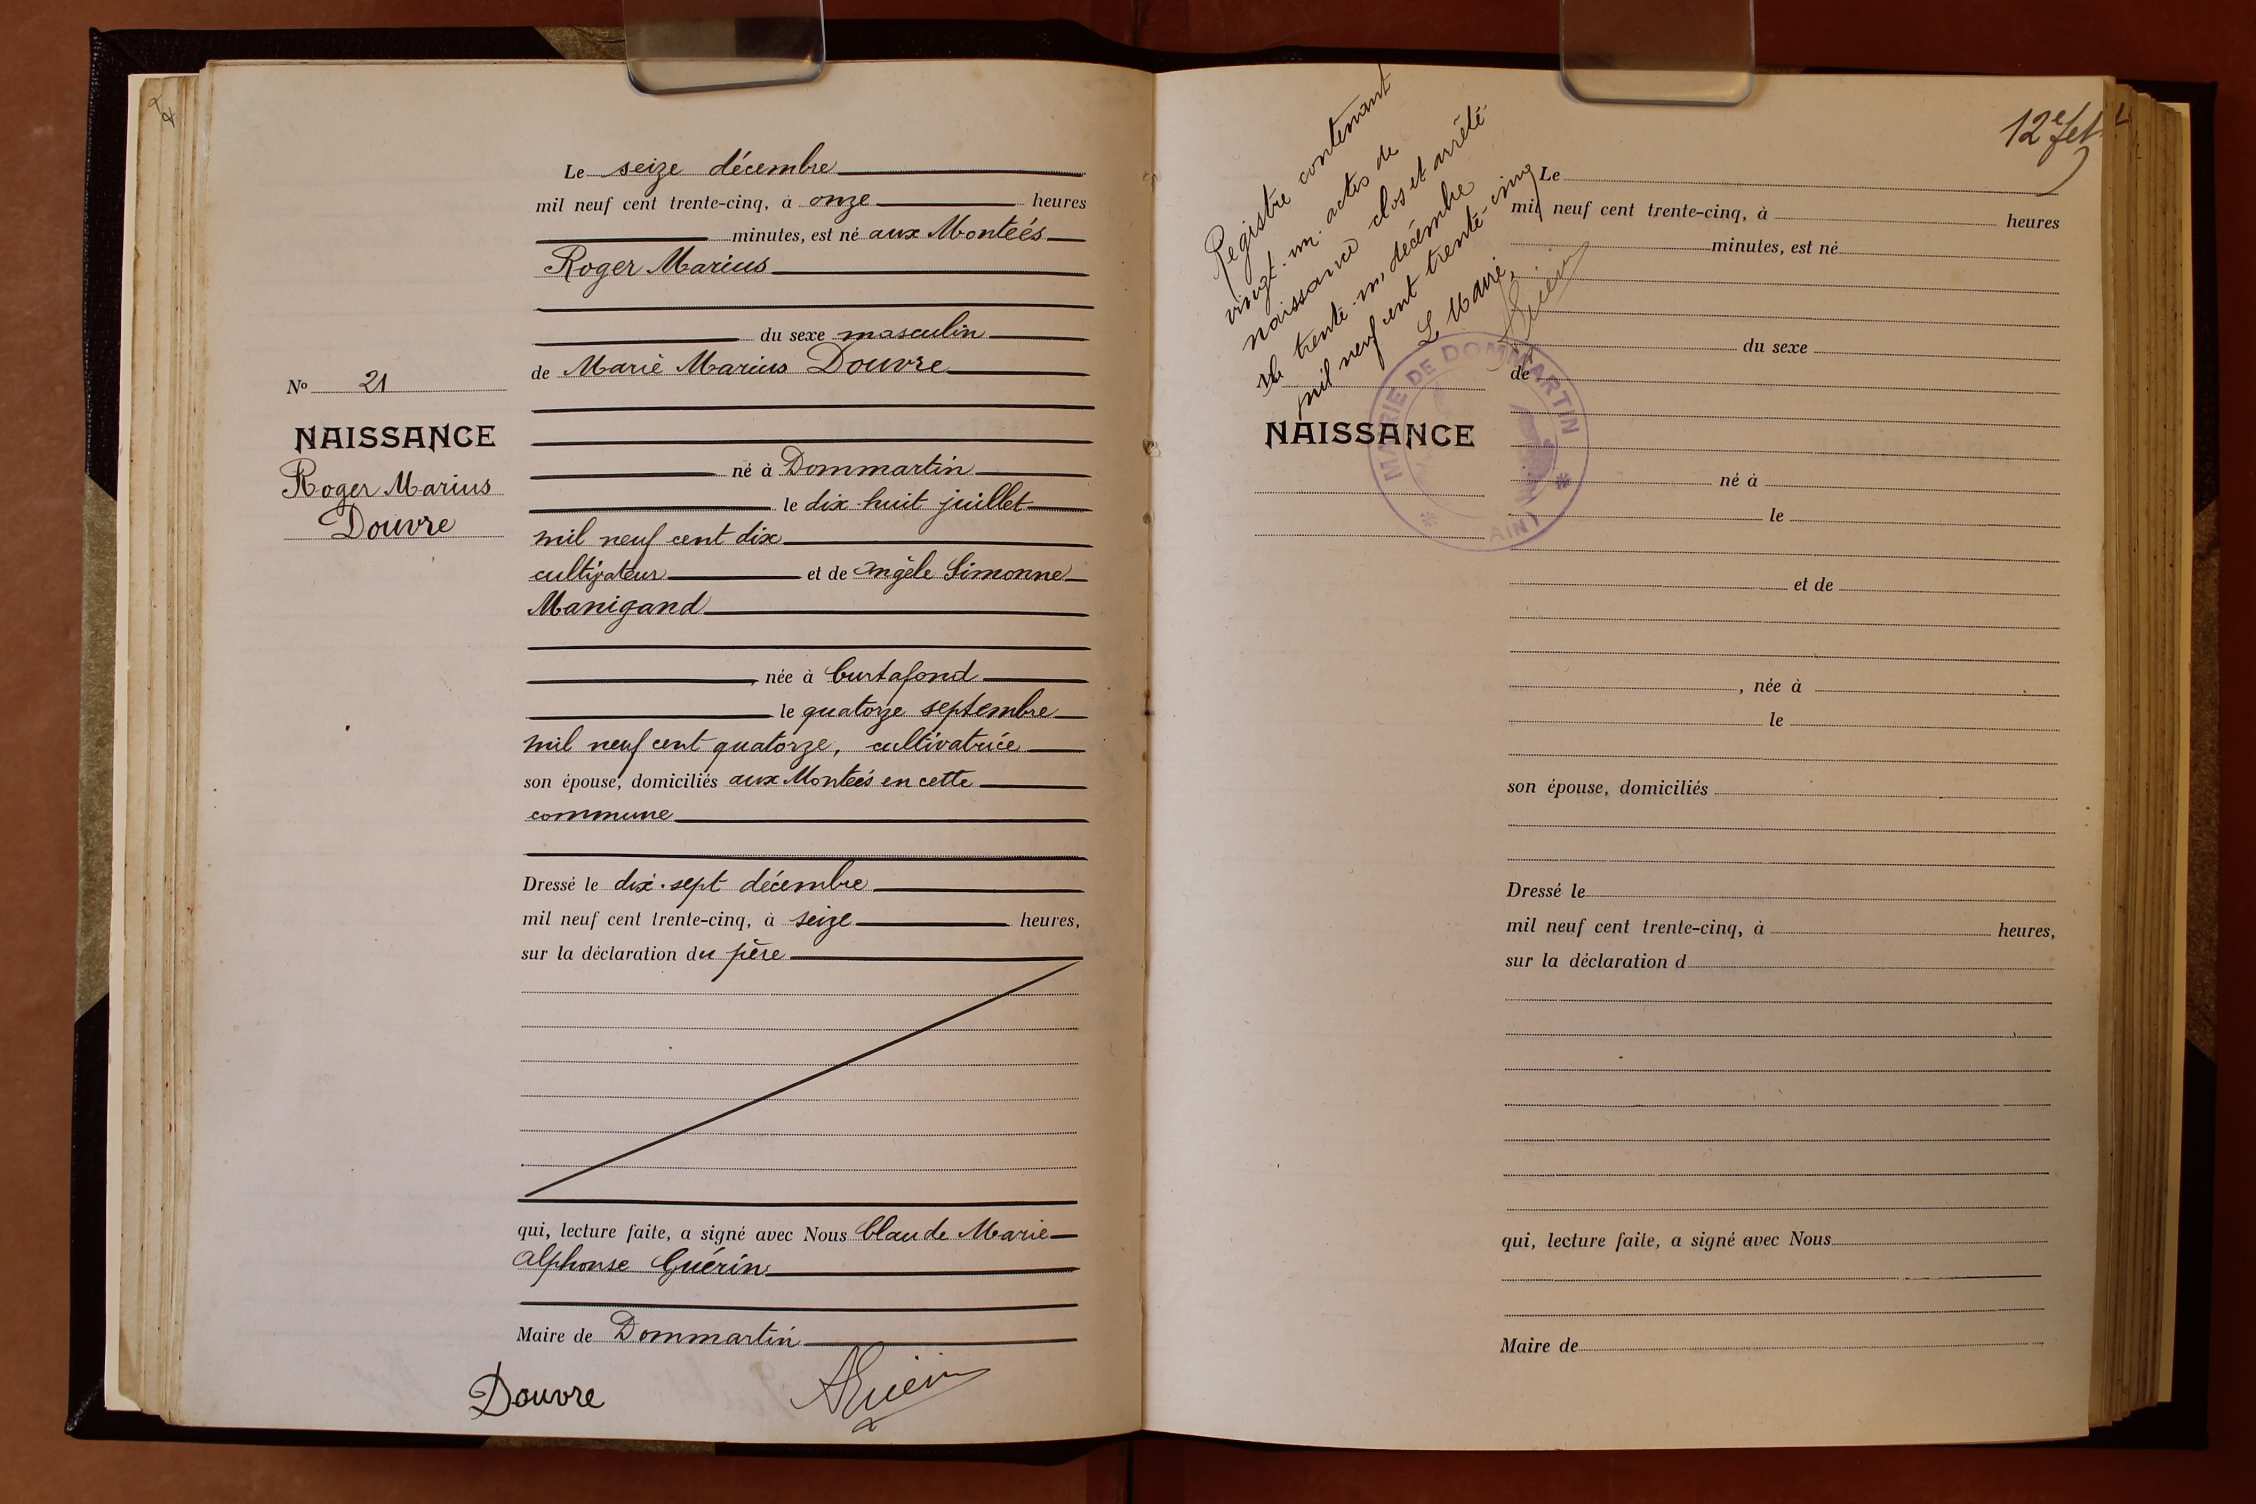 Le seize décembre
mil neuf cent trente-cinq, à onze heures
minutes, est né aux Monteés
Roger Marius
du sexe masculin
de Marie Marius Douvre
né à Dommartin
le dix-huit juillet
mil neuf cent dix
cultivateur et de Angèle Simonne
Manigand
, née à Curtafond
le quatorze septembre
mil neuf cent quatorze, cultivatrice
son épouse, domiciliés aux Monteés en cette
commune
Dressé le dix-sept décembre
mil neuf cent trente-cinq, à seize heures,
sur la déclaration du père
qui, lecture faite, a signé avec Nous Claude Marie
Alphonse Guérin
Maire de Dommartin
Douvre
AGuérin
No 21
NAISSANCE
Roger Marius
Douvre
12e fet
Registre contenant
vingt-un actes de
naissance clos et arrêté
le trente-un décembre
mil neuf cent trente-cinq
Le Maire,
Guérin
MAIRIE DE DOMMARTIN
(AIN)
NAISSANCE
Le
mil neuf cent trente-cinq, à heures
minutes, est né
du sexe
de
né à
le
et de
, née à
le
son épouse, domiciliés
Dressé le
mil neuf cent trente-cinq, à heures,
sur la déclaration d
qui, lecture faite, a signé avec Nous
Maire de